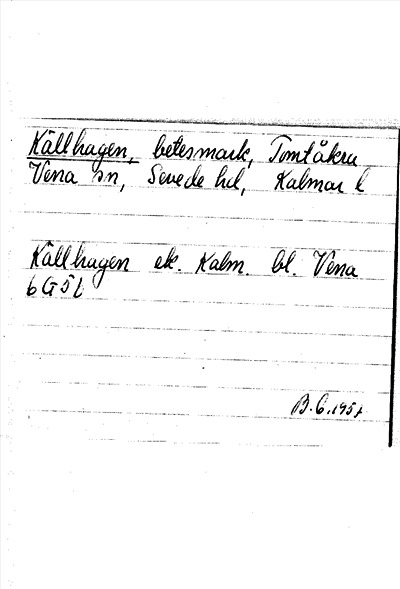 Källhagen, betesmark, Tomtåkra
Vena sn, Sevede hd, Kalmar l
Källhagen ek. Kalm. bl. Vena
6G5b
B.C. 1951